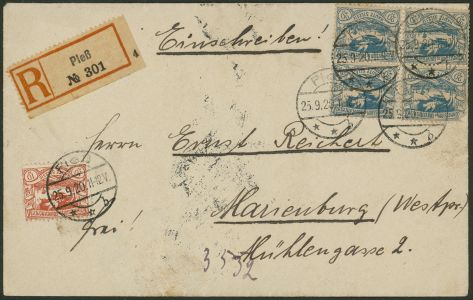 Einschreiben!
R
Pleß
№ 301
4
25.9.20
Herrn Ernst Reichert
Pleß
25.9.20 11-12V.
b
Marienburg (Westpr.)
frei!
Mühlengasse 2.
3532